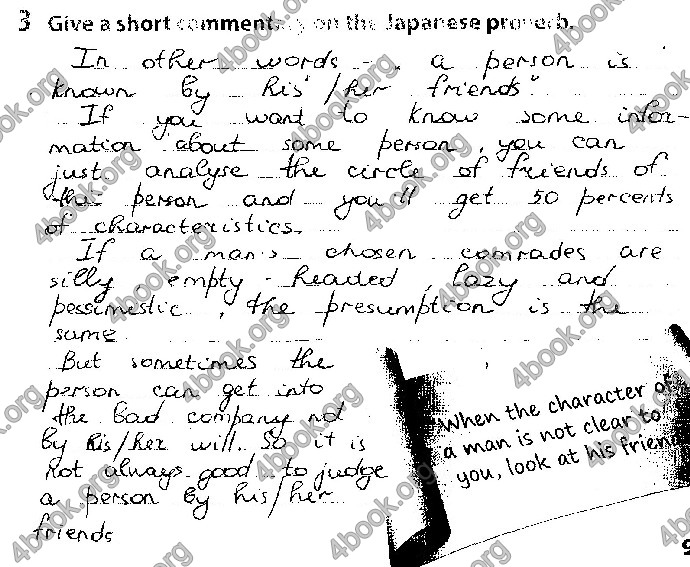 3 Give a short commentary on the Japanese proverb.
In other words - , a person is
known by his /her friends"
If you want to know some infor-
mation about some person, you can
just analyse the circle of friends of
this person and you'll get 50 percents
of characteristics.
If a man's chosen comrades are
silly, empty-headed, lazy and
pessimestic, the presumption is the
same
But sometimes the
person can get into
the bad company not
by his/her will. So it is
not always good to judge
a person by his/her
friends
When the character of
a man is not clear to
you, look at his friend
9
4book.org